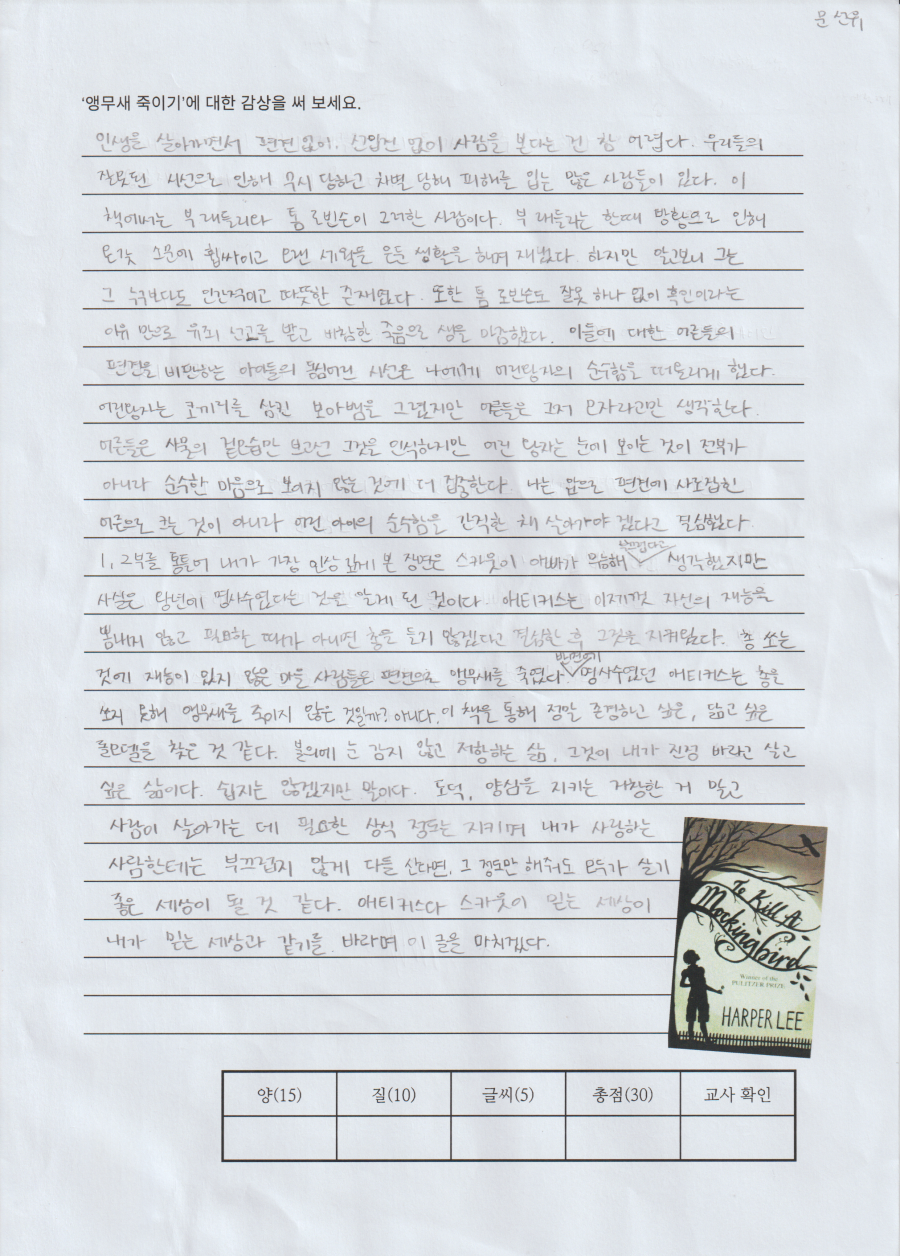 문선위
'앵무새 죽이기'에 대한 감상을 써 보세요.
인생을 살아가면서 편견 없이, 선입견 없이 사람을 본다는 건 참 어렵다. 우리들의
잘못된 시선으로 인해 무시 당하고 차별 당해 피해를 입는 많은 사람들이 있다. 이
책에서는 부 래들리와 톰 로빈손이 그러한 사람이다. 부 래들리는 한때 방황으로 인해
온갖 소문에 휩싸이고 오랜 세월을 은둔 생활을 하며 지냈다. 하지만 알고보니 그는
그 누구보다도 인간적이고 따뜻한 존재였다. 또한 톰 로빈손도 잘못 하나 없이 흑인이라는
이유 만으로 유죄 선고를 받고 비참한 죽음으로 생을 마감했다. 이들에 대한 어른들의
편견을 비판하는 아이들의 동심어린 시선은 나에게 어린왕자의 순수함을 떠올리게 했다.
어린왕자는 코끼리를 삼킨 보아뱀을 그렸지만 어른들은 그저 모자라고만 생각한다.
어른들은 사물의 겉모습만 보고선 그것을 인식하지만 어린 왕자는 눈에 보이는 것이 전부가
아니라 순수한 마음으로 보이지 않는 것에 더 집중한다. 나는 앞으로 편견에 사로잡힌
어른으로 크는 것이 아니라 어린 아이의 순수함을 간직한 채 살아가야 겠다고 결심했다.
1, 2부를 통틀어 내가 가장 인상 깊게 본 장면은 스카웃이 아빠가 무능해 부끄럽다고 생각했지만
사실은 왕년에 명사수였다는 것을 알게 된 것이다. 애티커스는 이제껏 자신의 재능을
뽐내지 않고 필요한 때가 아니면 총을 들지 않겠다고 결심한 후 그것을 지켜왔다. 총 쏘는
것에 재능이 있지 않은 마을 사람들은 편견으로 앵무새를 죽였다. 반면에 명사수였던 애티커스는 총을
쏘지 못해 앵무새를 죽이지 않은 것일까? 아니다. 이 책을 통해 정말 존경하고 싶은, 닮고 싶은
롤모델을 찾은 것 같다. 불의에 눈 감지 않고 저항하는 삶, 그것이 내가 진정 바라고 살고
싶은 삶이다. 쉽지는 않겠지만 말이다. 도덕, 양심을 지키는 거창한 거 말고
사람이 살아가는 데 필요한 상식 정도는 지키며 내가 사랑하는
사람한테는 부끄럽지 않게 다들 산다면, 그 정도만 해줘도 모두가 살기
좋은 세상이 될 것 같다. 애티커스와 스카웃이 믿는 세상이
내가 믿는 세상과 같기를 바라며 이 글을 마치겠다.
To Kill A
Mockingbird
Winner of the
PULITZER PRIZE
HARPER LEE
양(15) 질(10) 글씨(5) 총점(30) 교사 확인